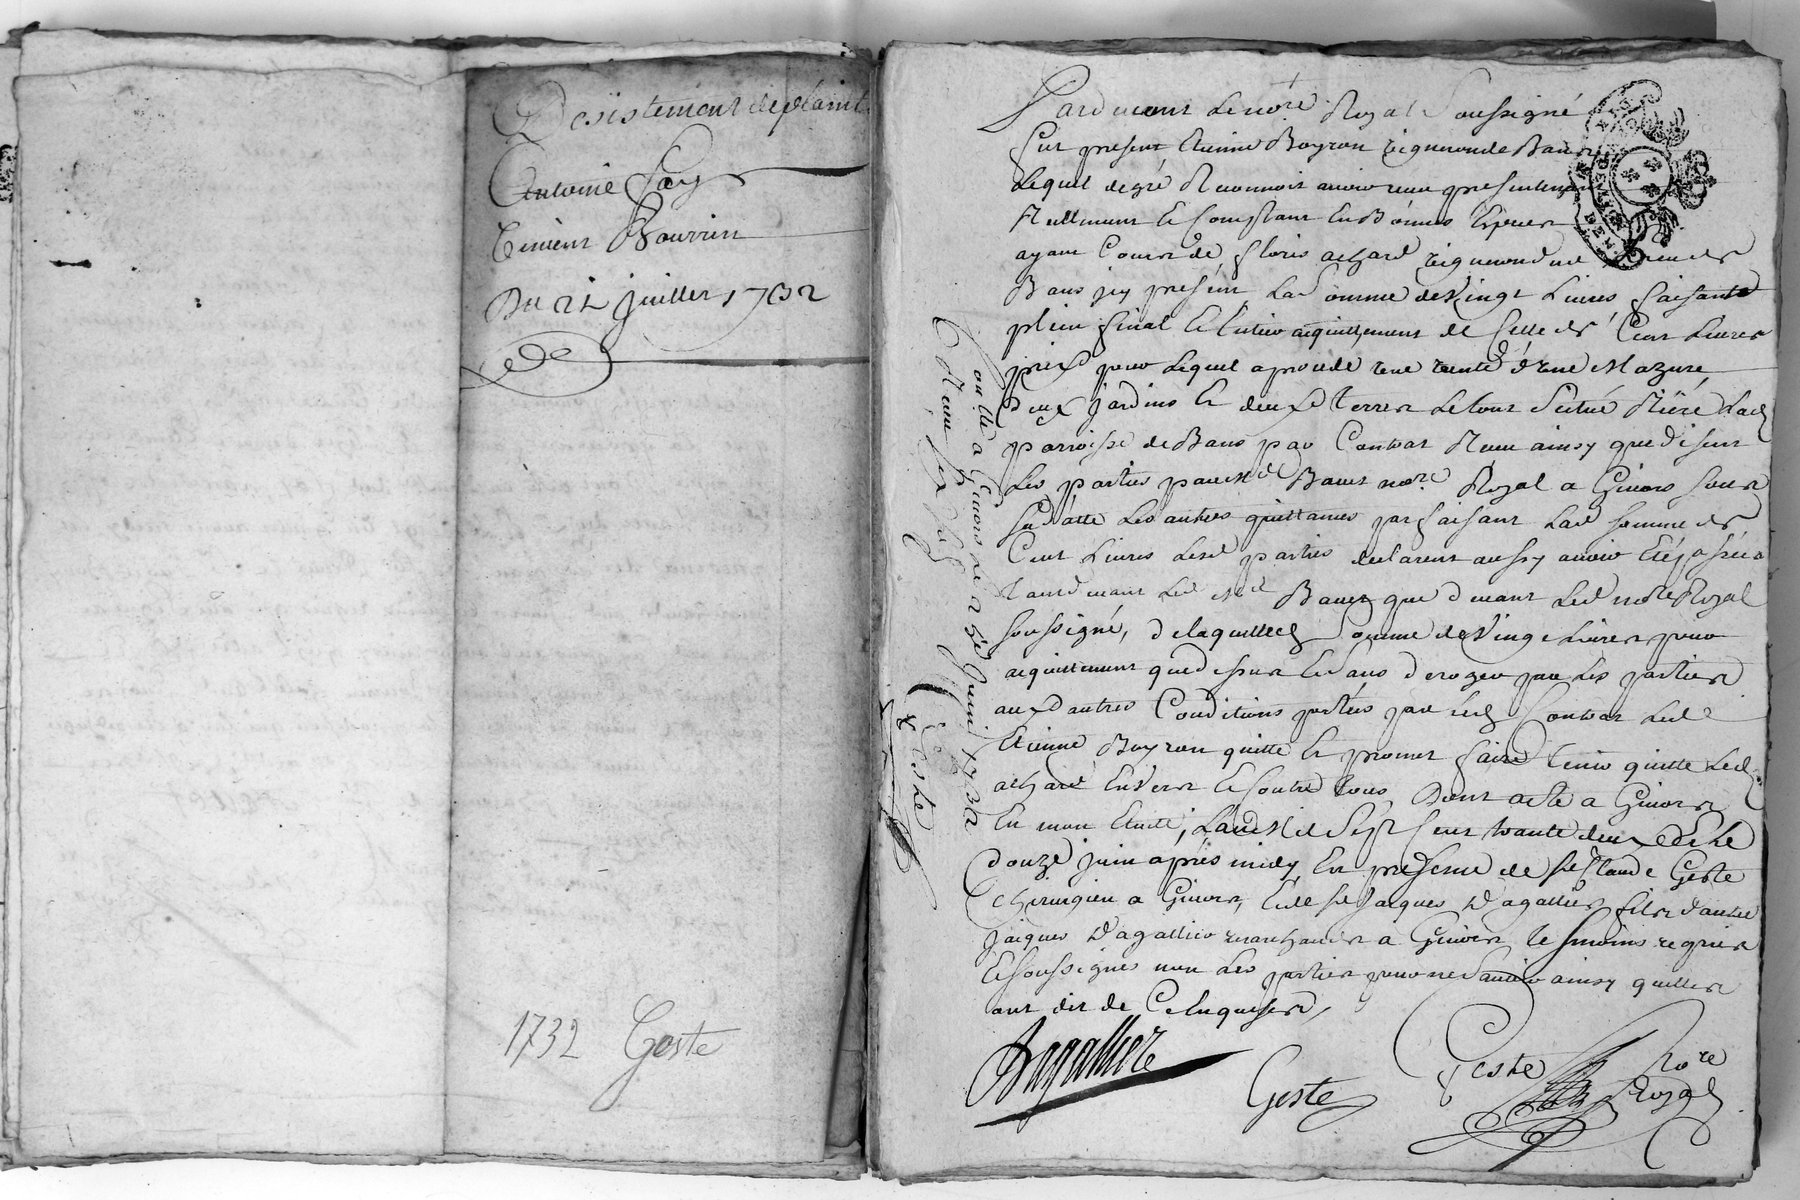 Desistement de plainte
Antoine Fay
Clement Bourrin
Du 21 juillet 1732
1732 Geste
Pardevant le no.re Royal soussigné
fut present Etienne Boyron vigneron de Bans
lequel de gré Reconnoit avoir receu presentement
Reellement et Comptant En Bonnes Especes
ayant Cours de floris achard vigneron du
Bans jcy présent, lad somme de Vingt Livres faisante
plein final et Entier acquittement de Celle de Cent Livres
prix pour lequel a procedé vente d'une Mazure
deux jardins et deux terres le tout Scitué Riere lad
parroisse de Bans par Contrat Receu ainsy que disent
Les parties par Me Bauct no.re Royal a Givors sous
sa datte Les autres quittances parfaisant lad somme de
Cent Livres Lesd parties declarent aussy avoir Eté passées
tant devant led Me Bauct que devant led no.re Royal
soussigné, de laquelle somme de Vingt Livres pour
acquittement que dessus Et Sans deroger par Les parties
aux autres Conditions portées par led Contrat Led
Etienne Boyron quitte et promet faire tenir quitte led
achard Envers et Contre tous, Dont acte a Givors
En mon Etude, L'an Mil Sept Cent trante deux et le
douze juin aprés midy, En presence de Sr Claude Geste
chirurgien a Givors, Et de Sr Jacques Dagallier fils d'autre
Jacques Dagallier marchand a Givors temoins requis
Et soussignés non Les parties pour ne sçavoir ainsy qu'elles
ont dit de Ce Enquises,
Dagallier
Geste
Geste
No.re
Royal
Conllé a Givors le 25e Juin 1732
Receu six sols
Geste